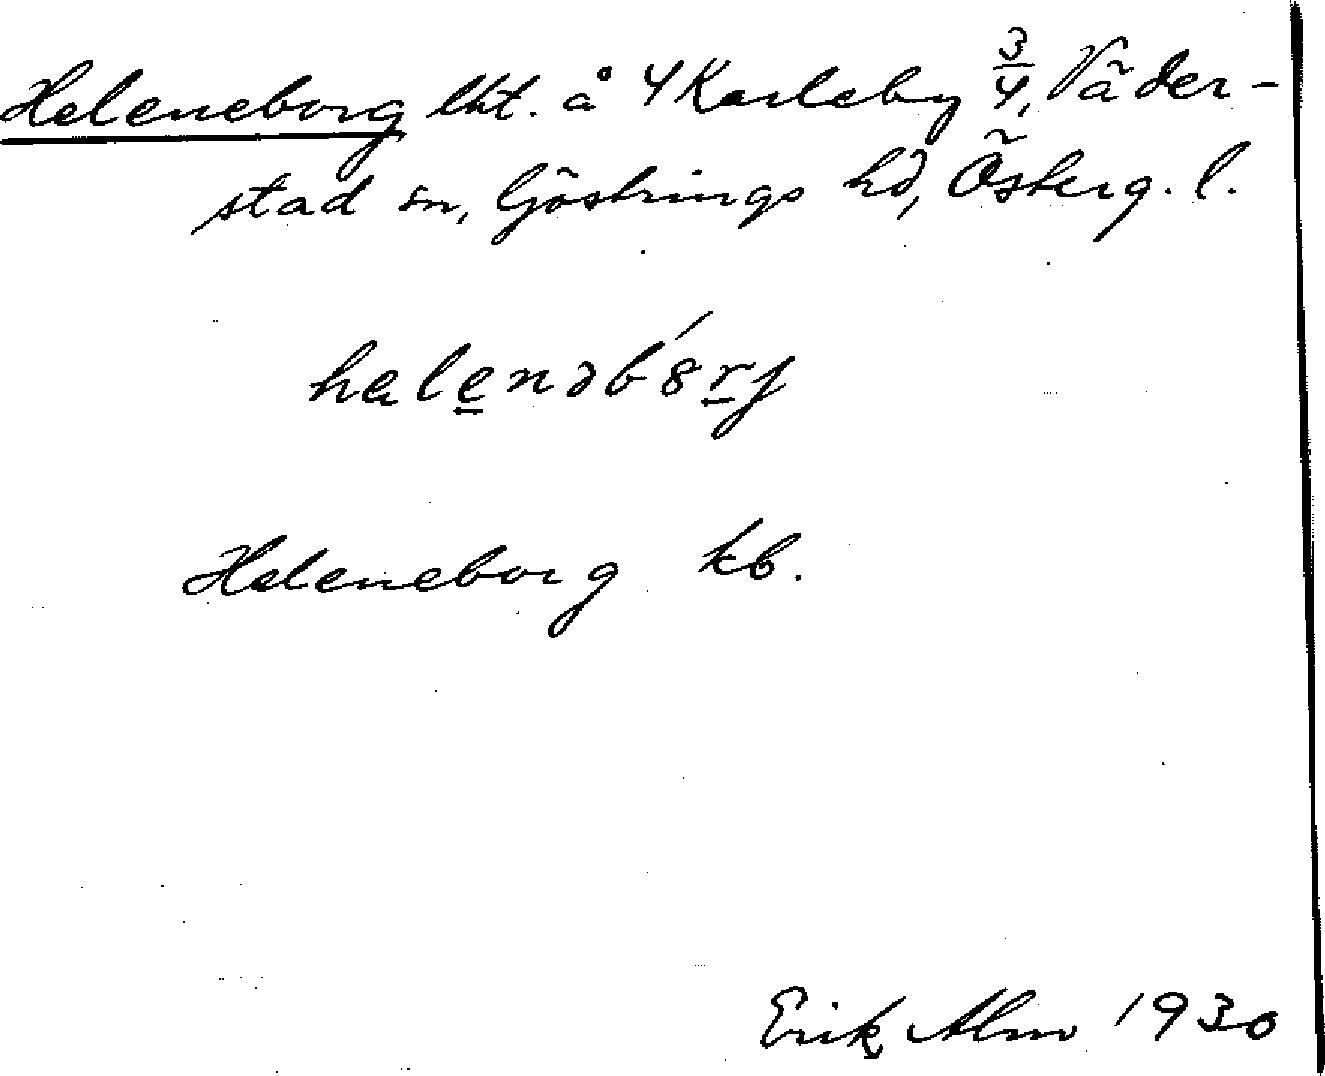 Heleneborg lht. å 4 Karleby 3/4, Väder-
stad sn, Göstrings hd, Österg. l.
halenəb́8rj
Heleneborg kb.
Erik Alm 1930